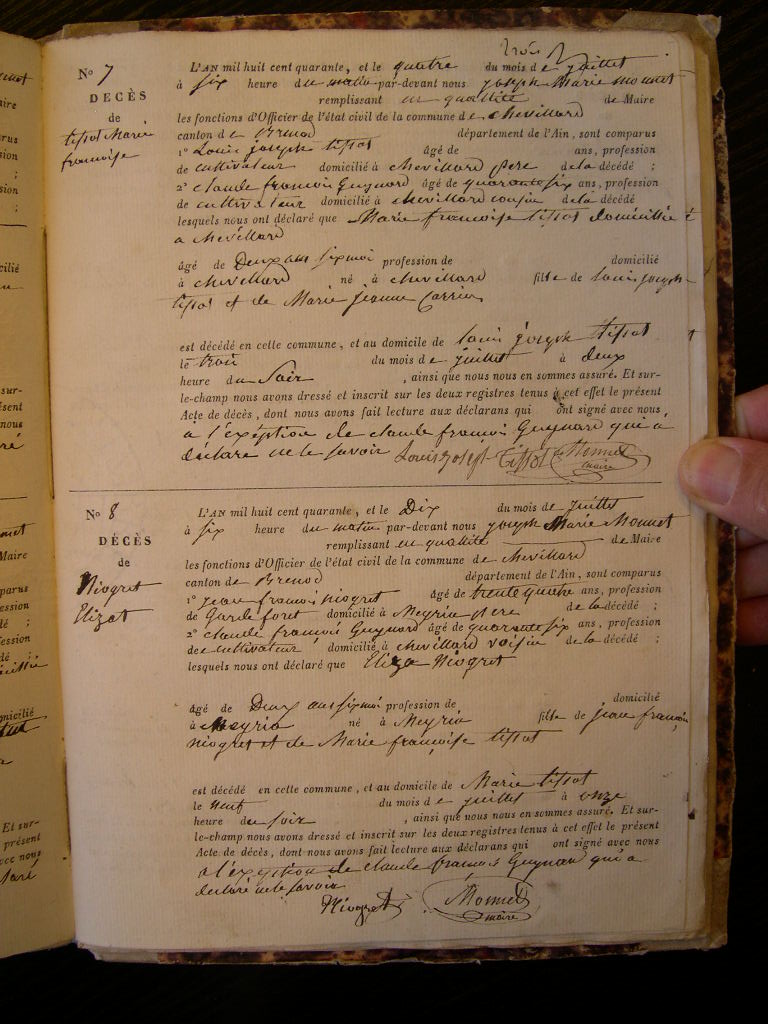 trois
N° 7
DECÈS
de
tissot Marie
francoise
L'AN mil huit cent quarante, et le quatre du mois de juillet
à six heure du matin par-devant nous joseph Marie monnet
remplissant en quallité de Maire
les fonctions d'Officier de l'état civil de la commune de chevillard
canton de Brenod département de l'Ain, sont comparus
1° Louis joseph tissot âgé de ans, profession
de cultivateur domicilié à chevillard pere de la décédé ;
2° claude francois Guynard âgé de quarante six ans, profession
de cultivateur domicilié à chevillard cousin de la décédé
lesquels nous ont déclaré que Marie francoise tissot domicillié
a chevillard
âgé de Deux ans six moi profession de domicilié
à chevillard né à chevillard fille de louis joseph
tissot et de Marie jeanne Carrier
est décédé en celle commune, et au domicile de louis joseph tissot
le trois du mois de juillet à deux
heure du Soir , ainsi que nous nous en sommes assuré. Et sur-
le-champ nous avons dressé et inscrit sur les deux registres tenus à cet effet le présent
Acte de décès, dont nous avons fait lecture aux déclarans qui ont signé avec nous
a l'exéption de claude francois Guynard qui a
déclare ne le savoir Louis Joseph Tissot Monnet
maire
N° 8
DÉCÈS
de
Niogret
Elizat
L'AN mil huit cent quarante, et le Dix du mois de juillet
à six heure du matin par-devant nous joseph Marie Monnet
remplissant en quallité de Maire
les fonctions d'Officier de l'état civil de la commune de chevillard
canton de Brenod département de l'Ain, sont comparus
1° jean francois niogret âgé de trente quatre ans, profession
de Garde foret domicilié à Meyria pere de la décédé ;
2° claude francois Guynard âgé de quarante six ans, profession
de cultivateur domicilié à chevillard voisin de la décédé ;
lesquels nous ont déclaré que Eliza Niogret
âgé de Deux ans six moi profession de domicilié
à Meyria né à Meyria fille de jean francois
niogret et de Marie françoise tissot
est décédé en cette commune, et au domicile de Marie tissot
le Neuf du mois de juillet à onze
heure du soir , ainsi que nous nous en sommes assuré. Et sur-
le-champ nous avons dressé et inscrit sur les deux registres tenus à cet effet le présent
Acte de décès, dont nous avons fait lecture aux déclarans qui ont signé avec nous
a l'exeption de claude francois Guynard qui a
declaré ne le savoir
Niogret Monnet
maire